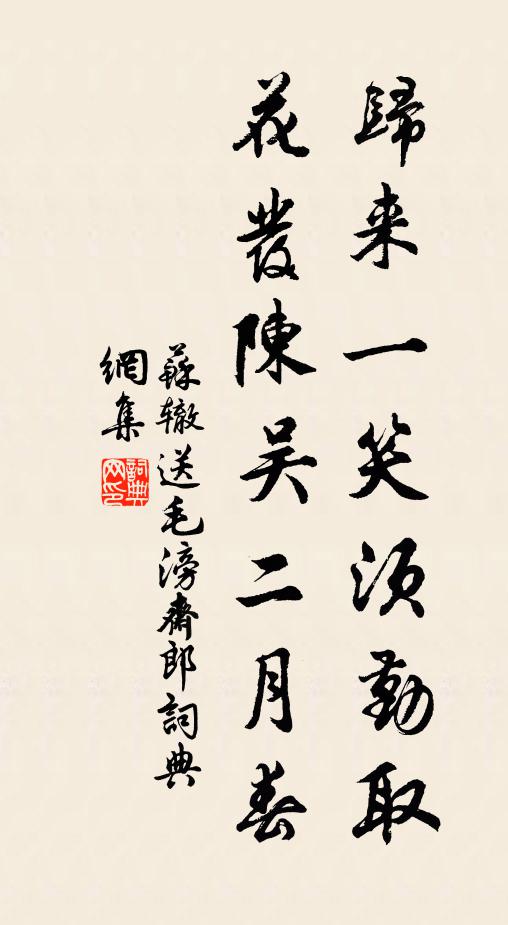 歸来一笑須勤取
花發陳吴二月春
蘇辙送毛滂齋郎詞典
網集
詞典网印